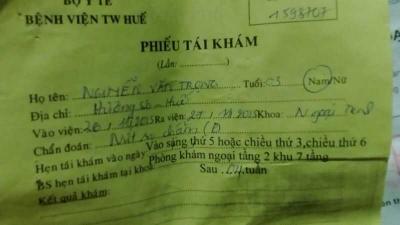 BỘ Y TẾ
BỆNH VIỆN TW HUẾ
1598707
PHIẾU TÁI KHÁM
(Lần:
Họ tên: NGUYỄN VĂN TRỌNG Tuổi: 03 Nam/Nữ
Địa chỉ: Hương Sơ - Huế
Vào viện: 26/11/2015 Ra viện: 27/11/2015 Khoa: Ngoại
Chẩn đoán: (P)
Vào sáng thứ 5 hoặc chiều thứ 3, chiều thứ 6
Hẹn tái khám vào ngày:
Phòng khám ngoại tầng 2 khu 7 tầng
BS hẹn tái khám tại khoa:
Sau 04 tuần
Kết quả khám: